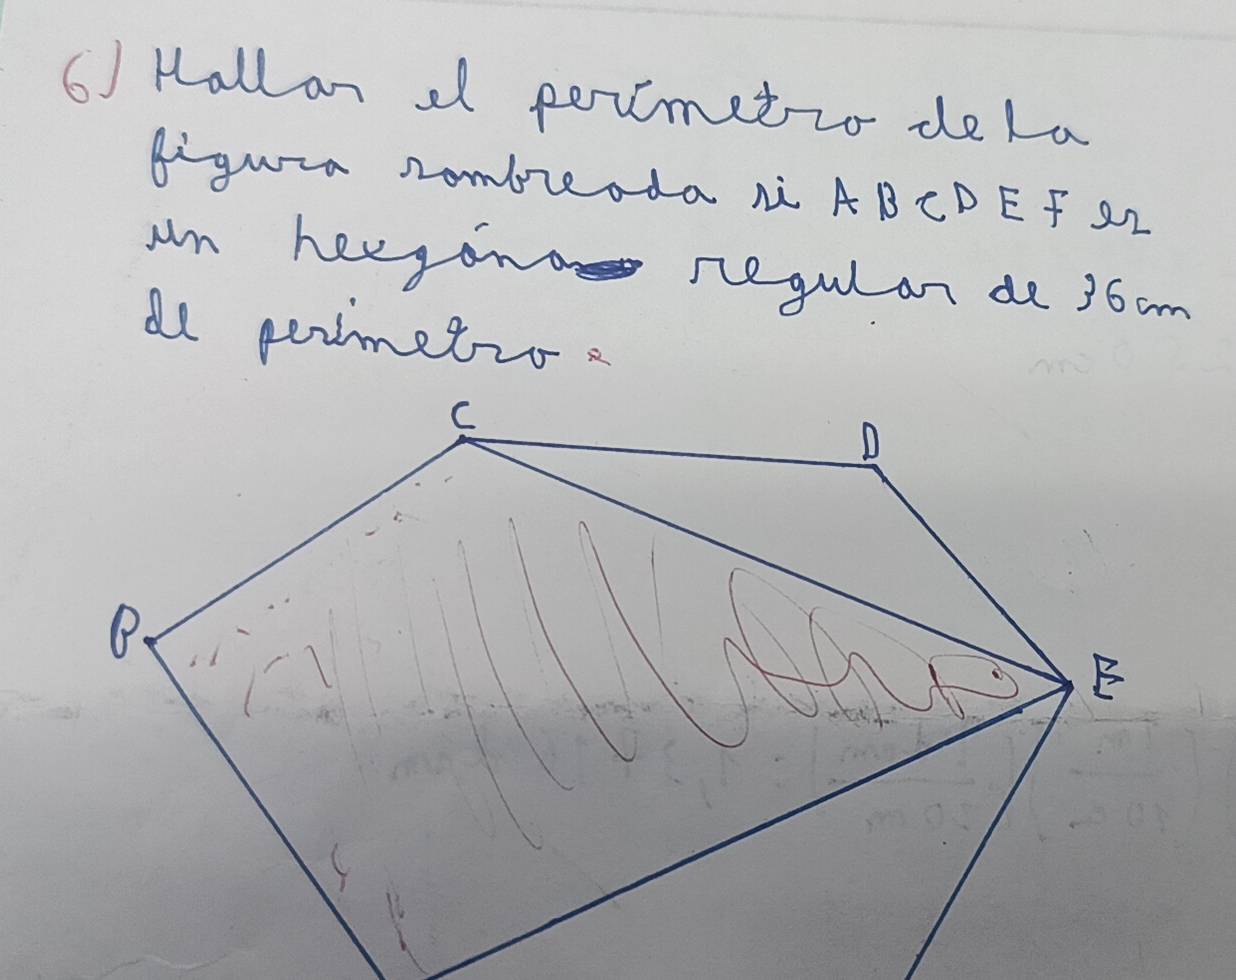 6) Hallar el perímetro de la
figura sombreada si A B C D E F es
un hexgóno regular de 36 cm
de perímetro.
C
D
B
E